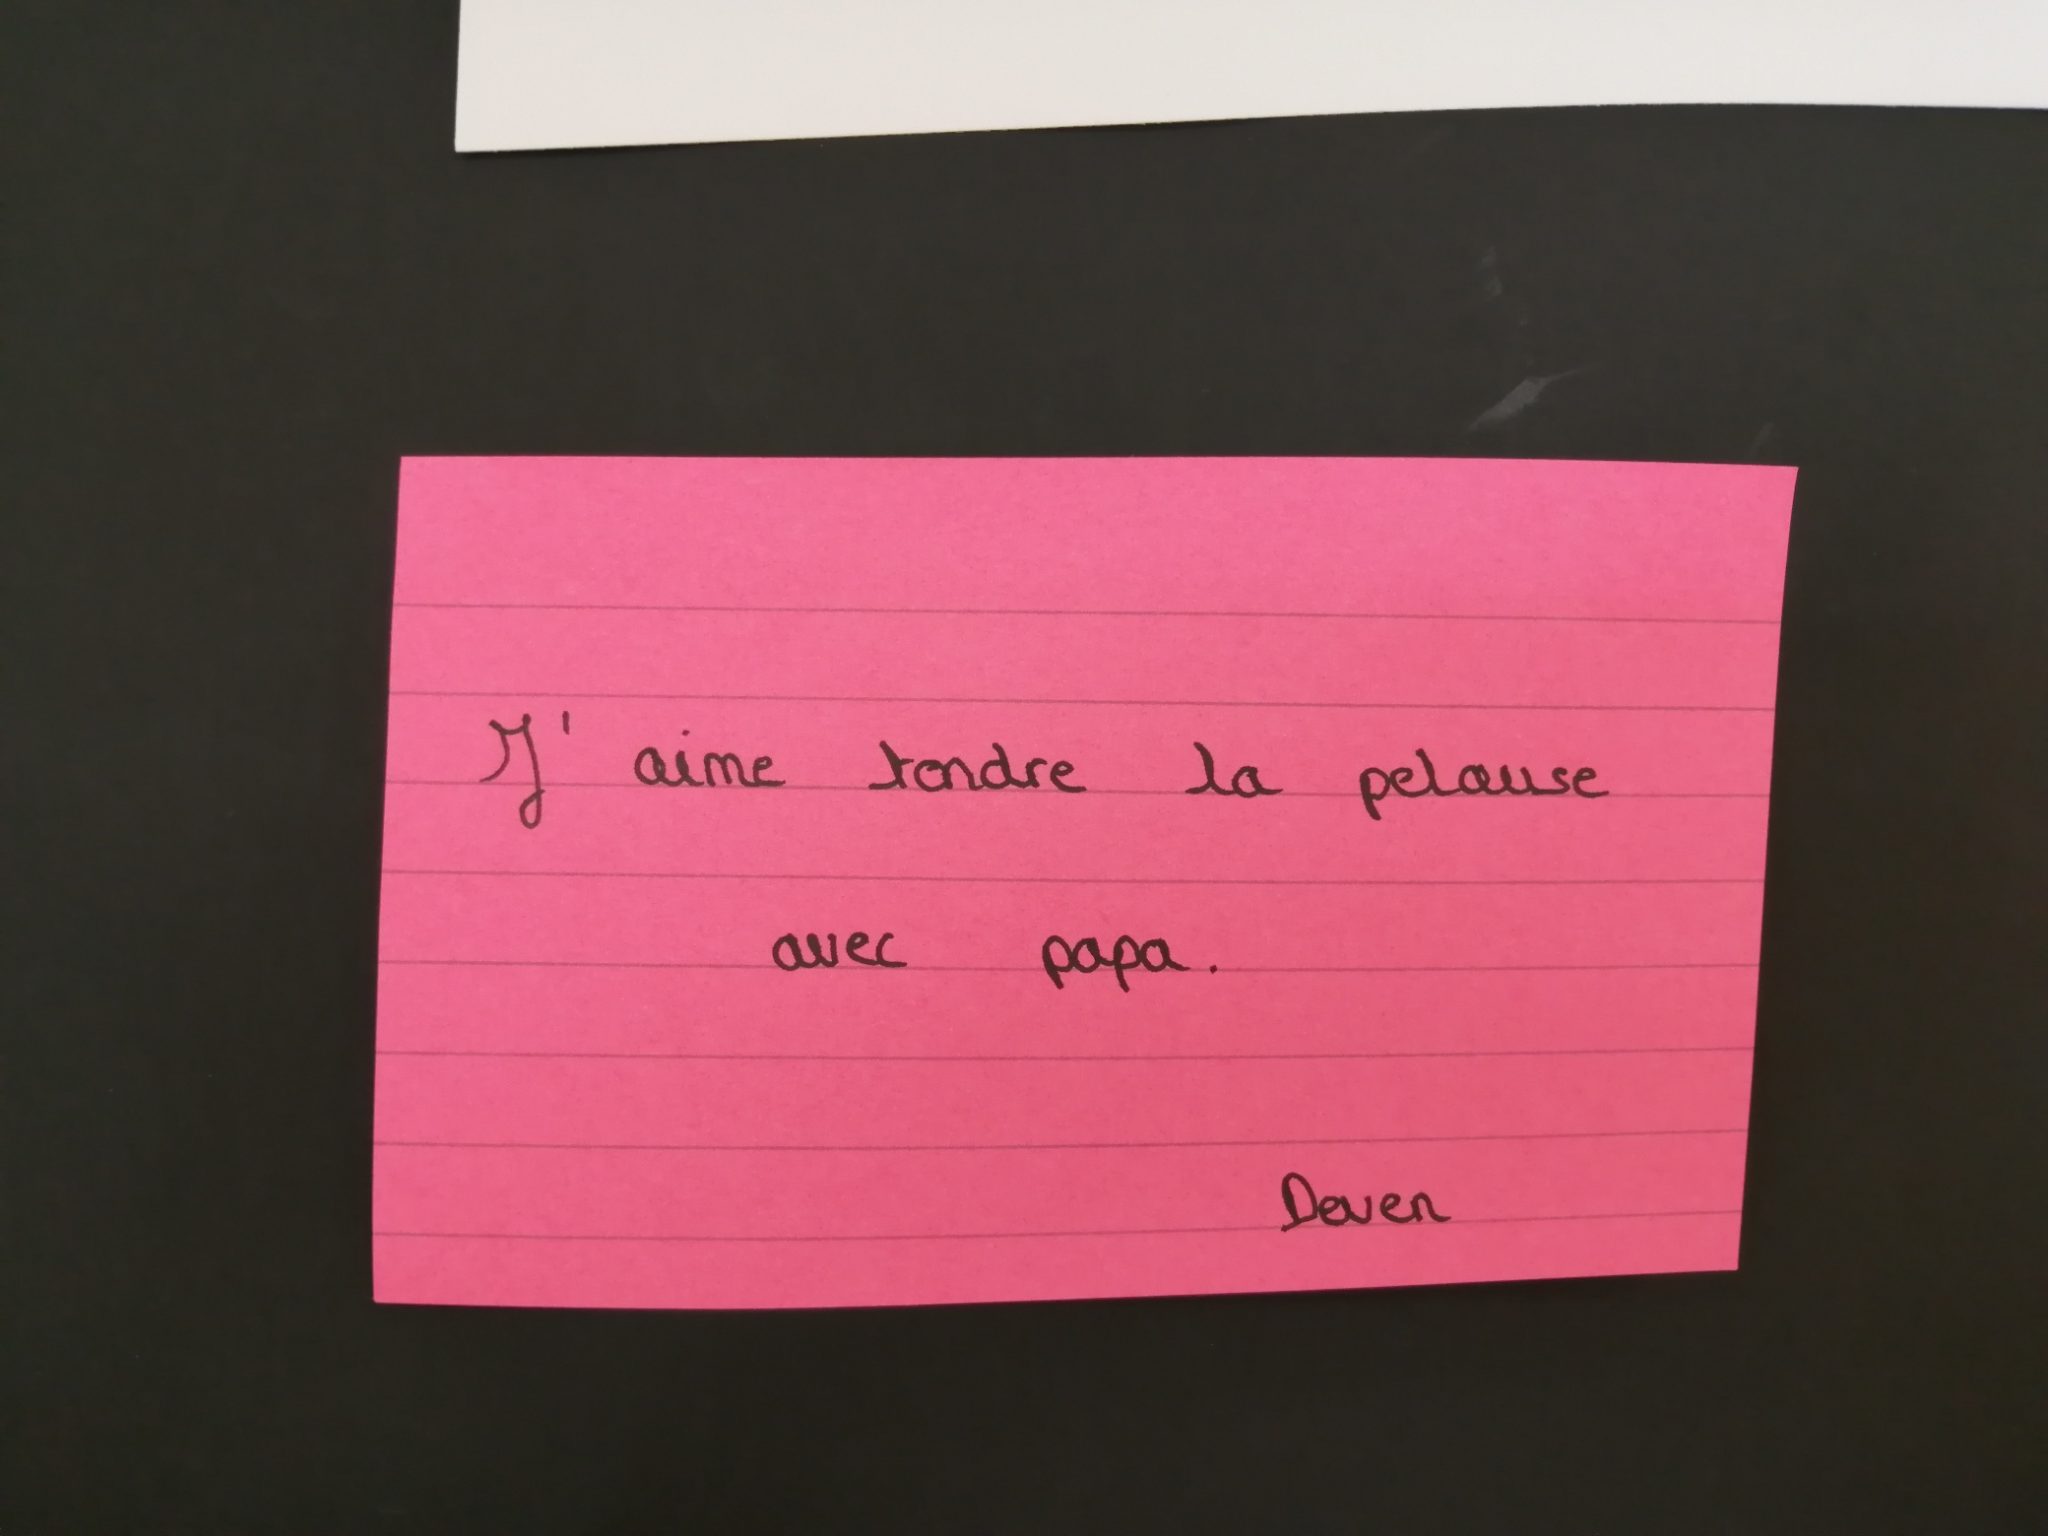 J' aime tondre la pelouse
avec papa.
Deven